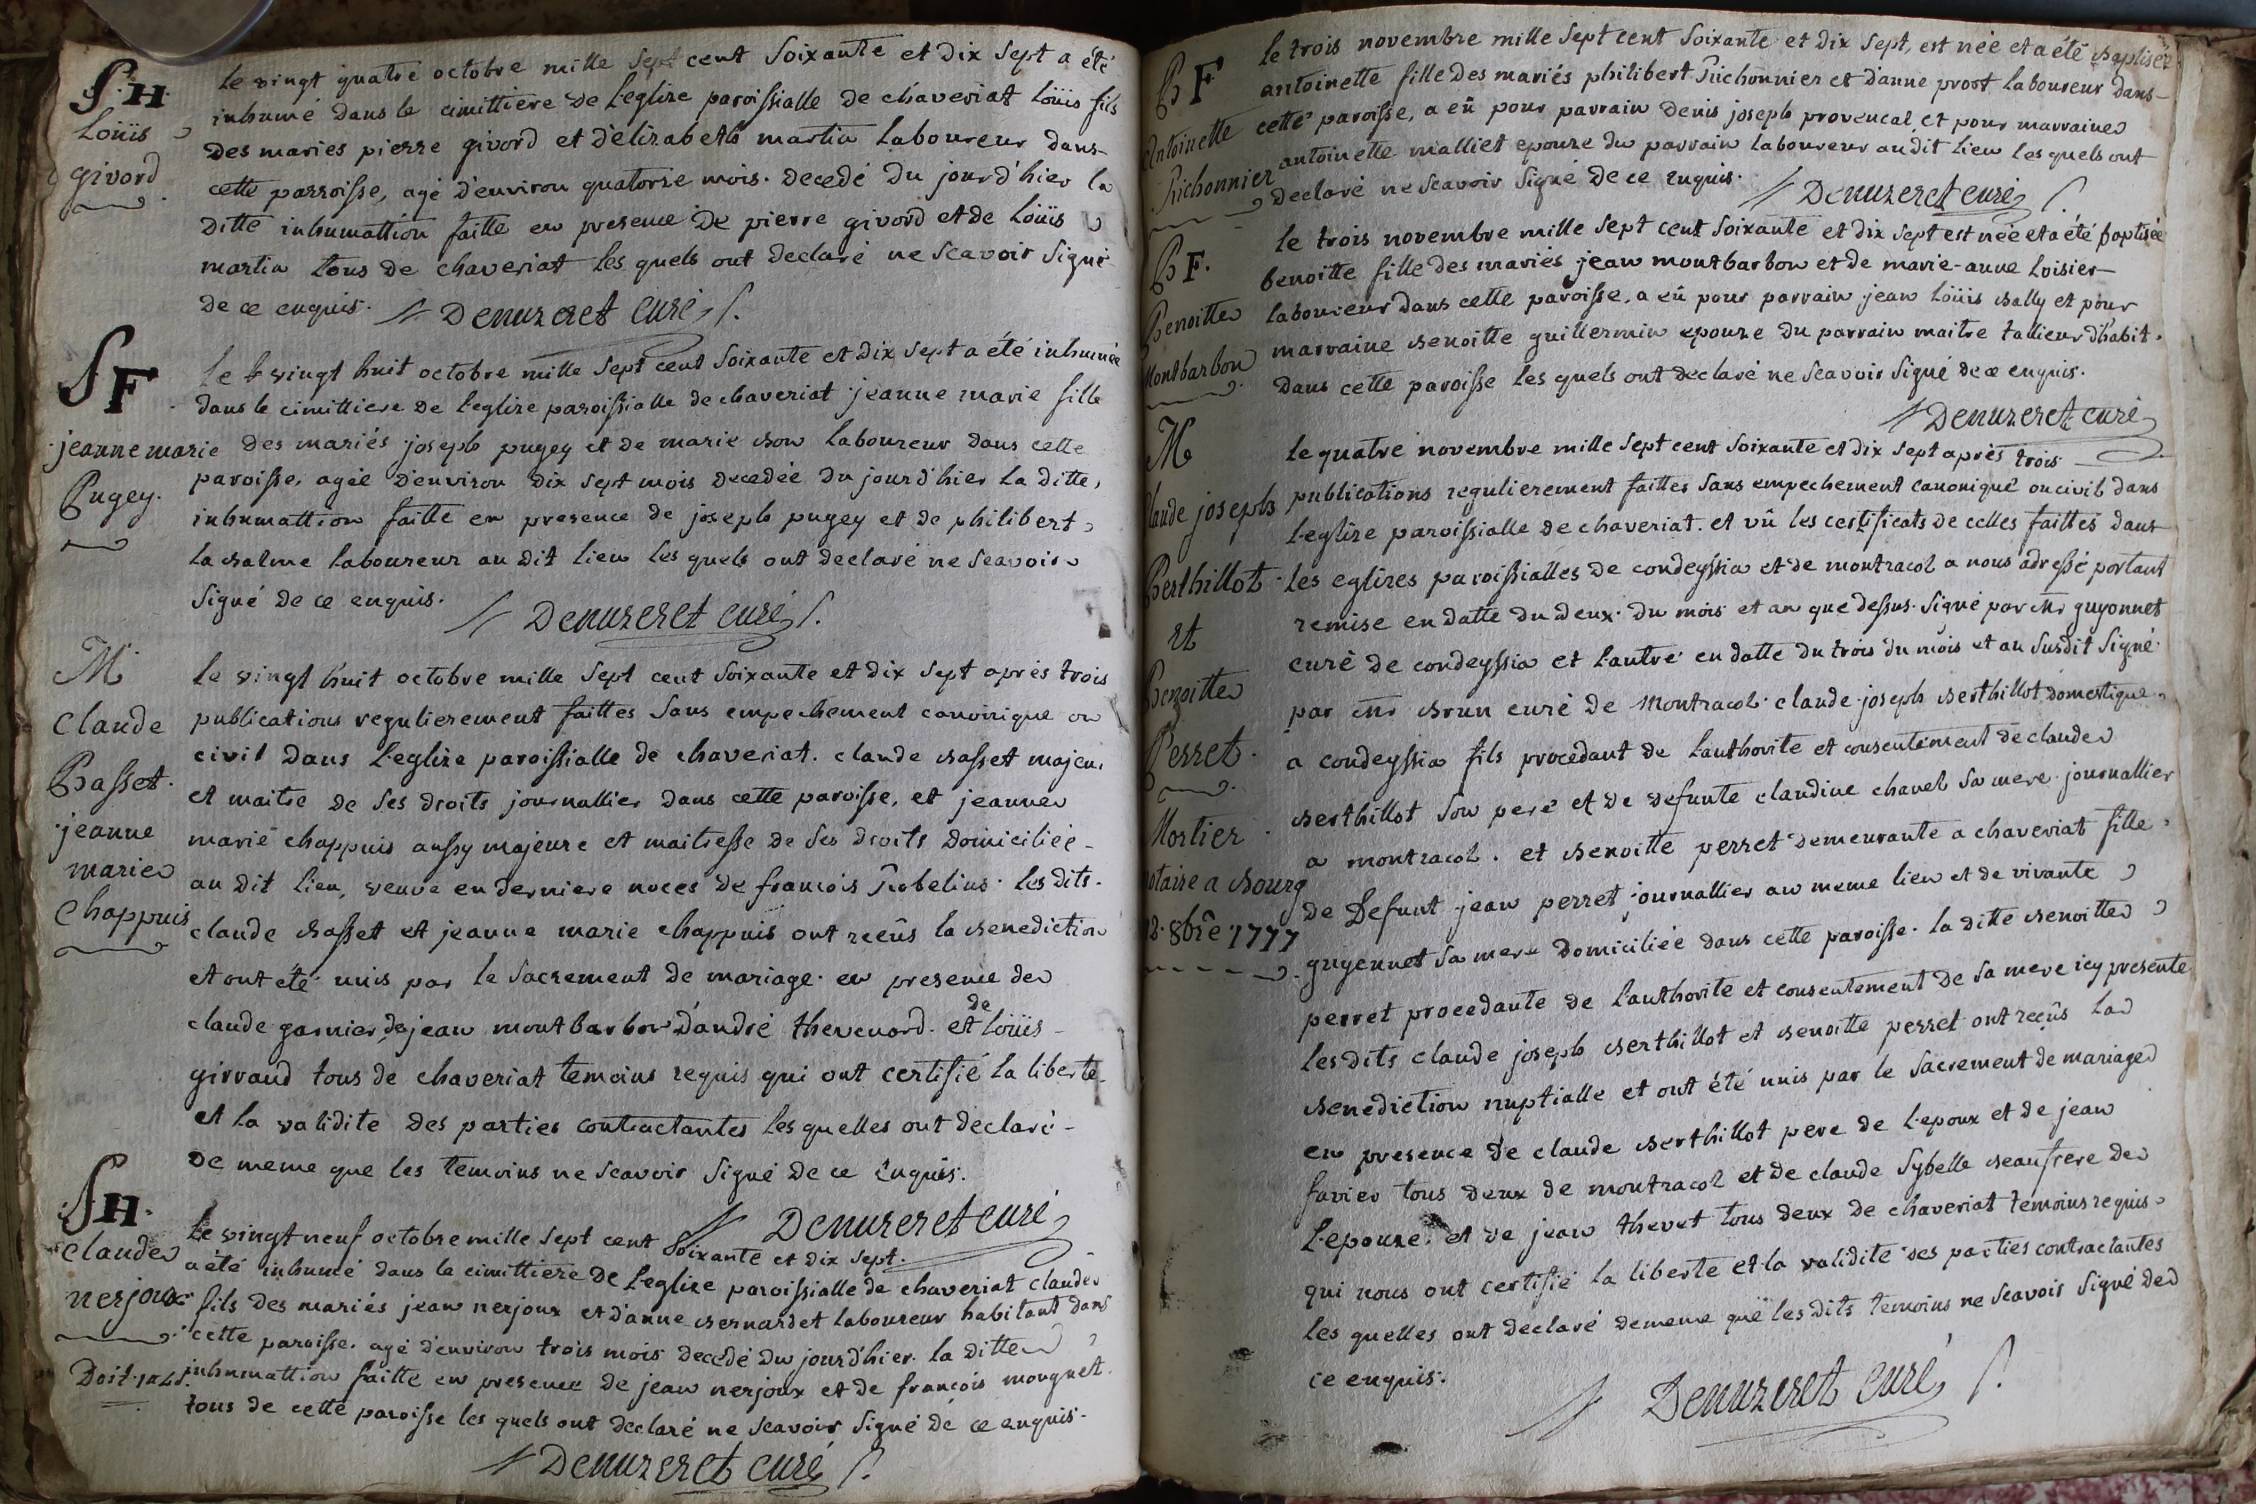 S.H.
Loüis
givord
le vingt quatre octobre mille sept cent soixante et dix sept a été
inhumé dans le cimittiere de l'eglize paroissialle de chaveriat loüis fils
des maries pierre givord et d'elizabeth martin laboureur dans
cette parroisse, agé d'environ quatorse mois. decedé du jour d'hier la
ditte inhumattion faitte en presence de pierre givord et de loüis
martin tous de chaveriat les quels ont declaré ne scavoir signé
de ce enquis. Denuzeret curé
S F
jeanne marie
Pugey.
le vingt huit octobre mille sept cent soixante et dix sept a été inhumée
dans le cimittiere de l'eglize paroissialle de chaveriat jeanne marie fille
des mariés joseph pugey et de marie bon laboureur dans cette
paroisse, agée d'environ dix sept mois decedée du jour d'hier la ditte,
inhumattion faitte en presence de joseph pugey et de philibert
la balme laboureur au dit lieu les quels ont declaré ne scavoir
signé de ce enquis. Denuzeret curé
M
Claude
Basset.
jeanne
marie
Chappuis
le vingt huit octobre mille sept cent soixante et dix sept aprés trois
publications regulierement faittes sans empechement canonique ou
civil dans l'eglize paroissialle de chaveriat. claude basset majeur
et maitre de ses droits journallier dans cette paroisse, et jeanne
marie chappuis aussy majeure et maitresse de ses droits domiciliée
au dit lieu, veuve en derniere noces de francois Robelius. les dits.
claude basset et jeanne marie chappuis ont reçûs la benediction
et ont été unis par le sacrement de mariage. en presence de
claude garnier de jean montbarbon d'andré thevenard. et de loüis
girvaud tous de chaveriat temoins requis qui ont certifié la liberté
et la validite des parties contractantes les quelles ont declaré
de meme que les temoins ne scavoir signé de ce enquis.
Denuzeret curé
S H.
Claude
nerjoux
Doit 1a L5.
le vingt neuf octobre mille sept cent soixante et dix sept.
a été inhumé dans le cimittiere de l'eglize paroissialle de chaveriat claude
fils des mariés jean nerjoux et d'anne bernardet laboureur habitant dans
cette paroisse. agé d'environ trois mois decedé du jour d'hier. la ditte
inhumattion faitte en presence de jean nerjoux et de francois monguet.
tous de cette paroisse les quels ont declaré ne scavoir signé de ce enquis.
Denuzeret curé
B F
Antoinette
Richonnier
le trois novembre mille sept cent soixante et dix sept, est née et a été baptisée
antoinette fille des mariés philibert Richonnier et d'anne prost laboureur dans
cette paroisse, a eû pour parrain denis joseph provencal et pour marraine
antoinette malliet epouze du parrain laboureur au dit lieu les quels ont
declaré ne scavoir signé de ce enquis. Denuzeret curé
B F.
Benoitte
Montbarbon
le trois novembre mille sept cent soixante et dix sept est née et a été baptisée
benoitte fille des mariés jean montbarbon et de marie-anne loisier
laboureur dans cette paroisse, a eû pour parrain jean loüis bally et pour
marraine benoitte guillermin epouze du parrain maitre tallieur d'habit.
dans cette paroisse les quels ont declaré ne scavoir signé de ce enquis.
Denuzeret curé
M
Claude joseph
Berthillot
et
Benoitte
Perret.
Mortier
notaire a bourg
12. 8bre 1777
le quatre novembre mille sept cent soixante et dix sept aprés trois
publications regulierement faittes sans empechement canonique ou civil dans
l'eglize paroissialle de chaveriat. et vû les certificats de celles faittes dans
les eglizes paroissialles de condeyssia et de montracol a nous adressé portant
remise en datte du deux. du mois et an que dessus. signé par mr guyonnet
curé de condeyssia et l'autre en datte du trois du mois et an susdit signé
par mr brun curé de Montracol. claude joseph berthillot domestique
a condeyssia fils procedant de l'authorité et consentement de claude
berthillot son pere et de defunte claudine chanel sa mere journallier
a montracol. et benoitte perret demeurante a chaveriat fille
de Defunt jean perret journallier au meme lieu et de vivante
guyennet sa mere domiciliée dans cette paroisse. la ditte benoitte
perret procedante de l'authorité et consentement de sa mere icy presente
les dits claude joseph berthillot et benoitte perret ont reçûs la
benediction nuptialle et ont été unis par le sacrement de mariage
en presence de claude berthillot pere de l'epoux et de jean
favier tous deux de montracol et de claude sybelle beaufrere de
l'epouze. et de jean thevet tous deux de chaveriat temoins requis
qui nous ont certifié la liberte et la validite des parties contractantes
les quelles ont declaré de meme que les dits temoins ne scavoir signé de
ce enquis. Denuzeret curé